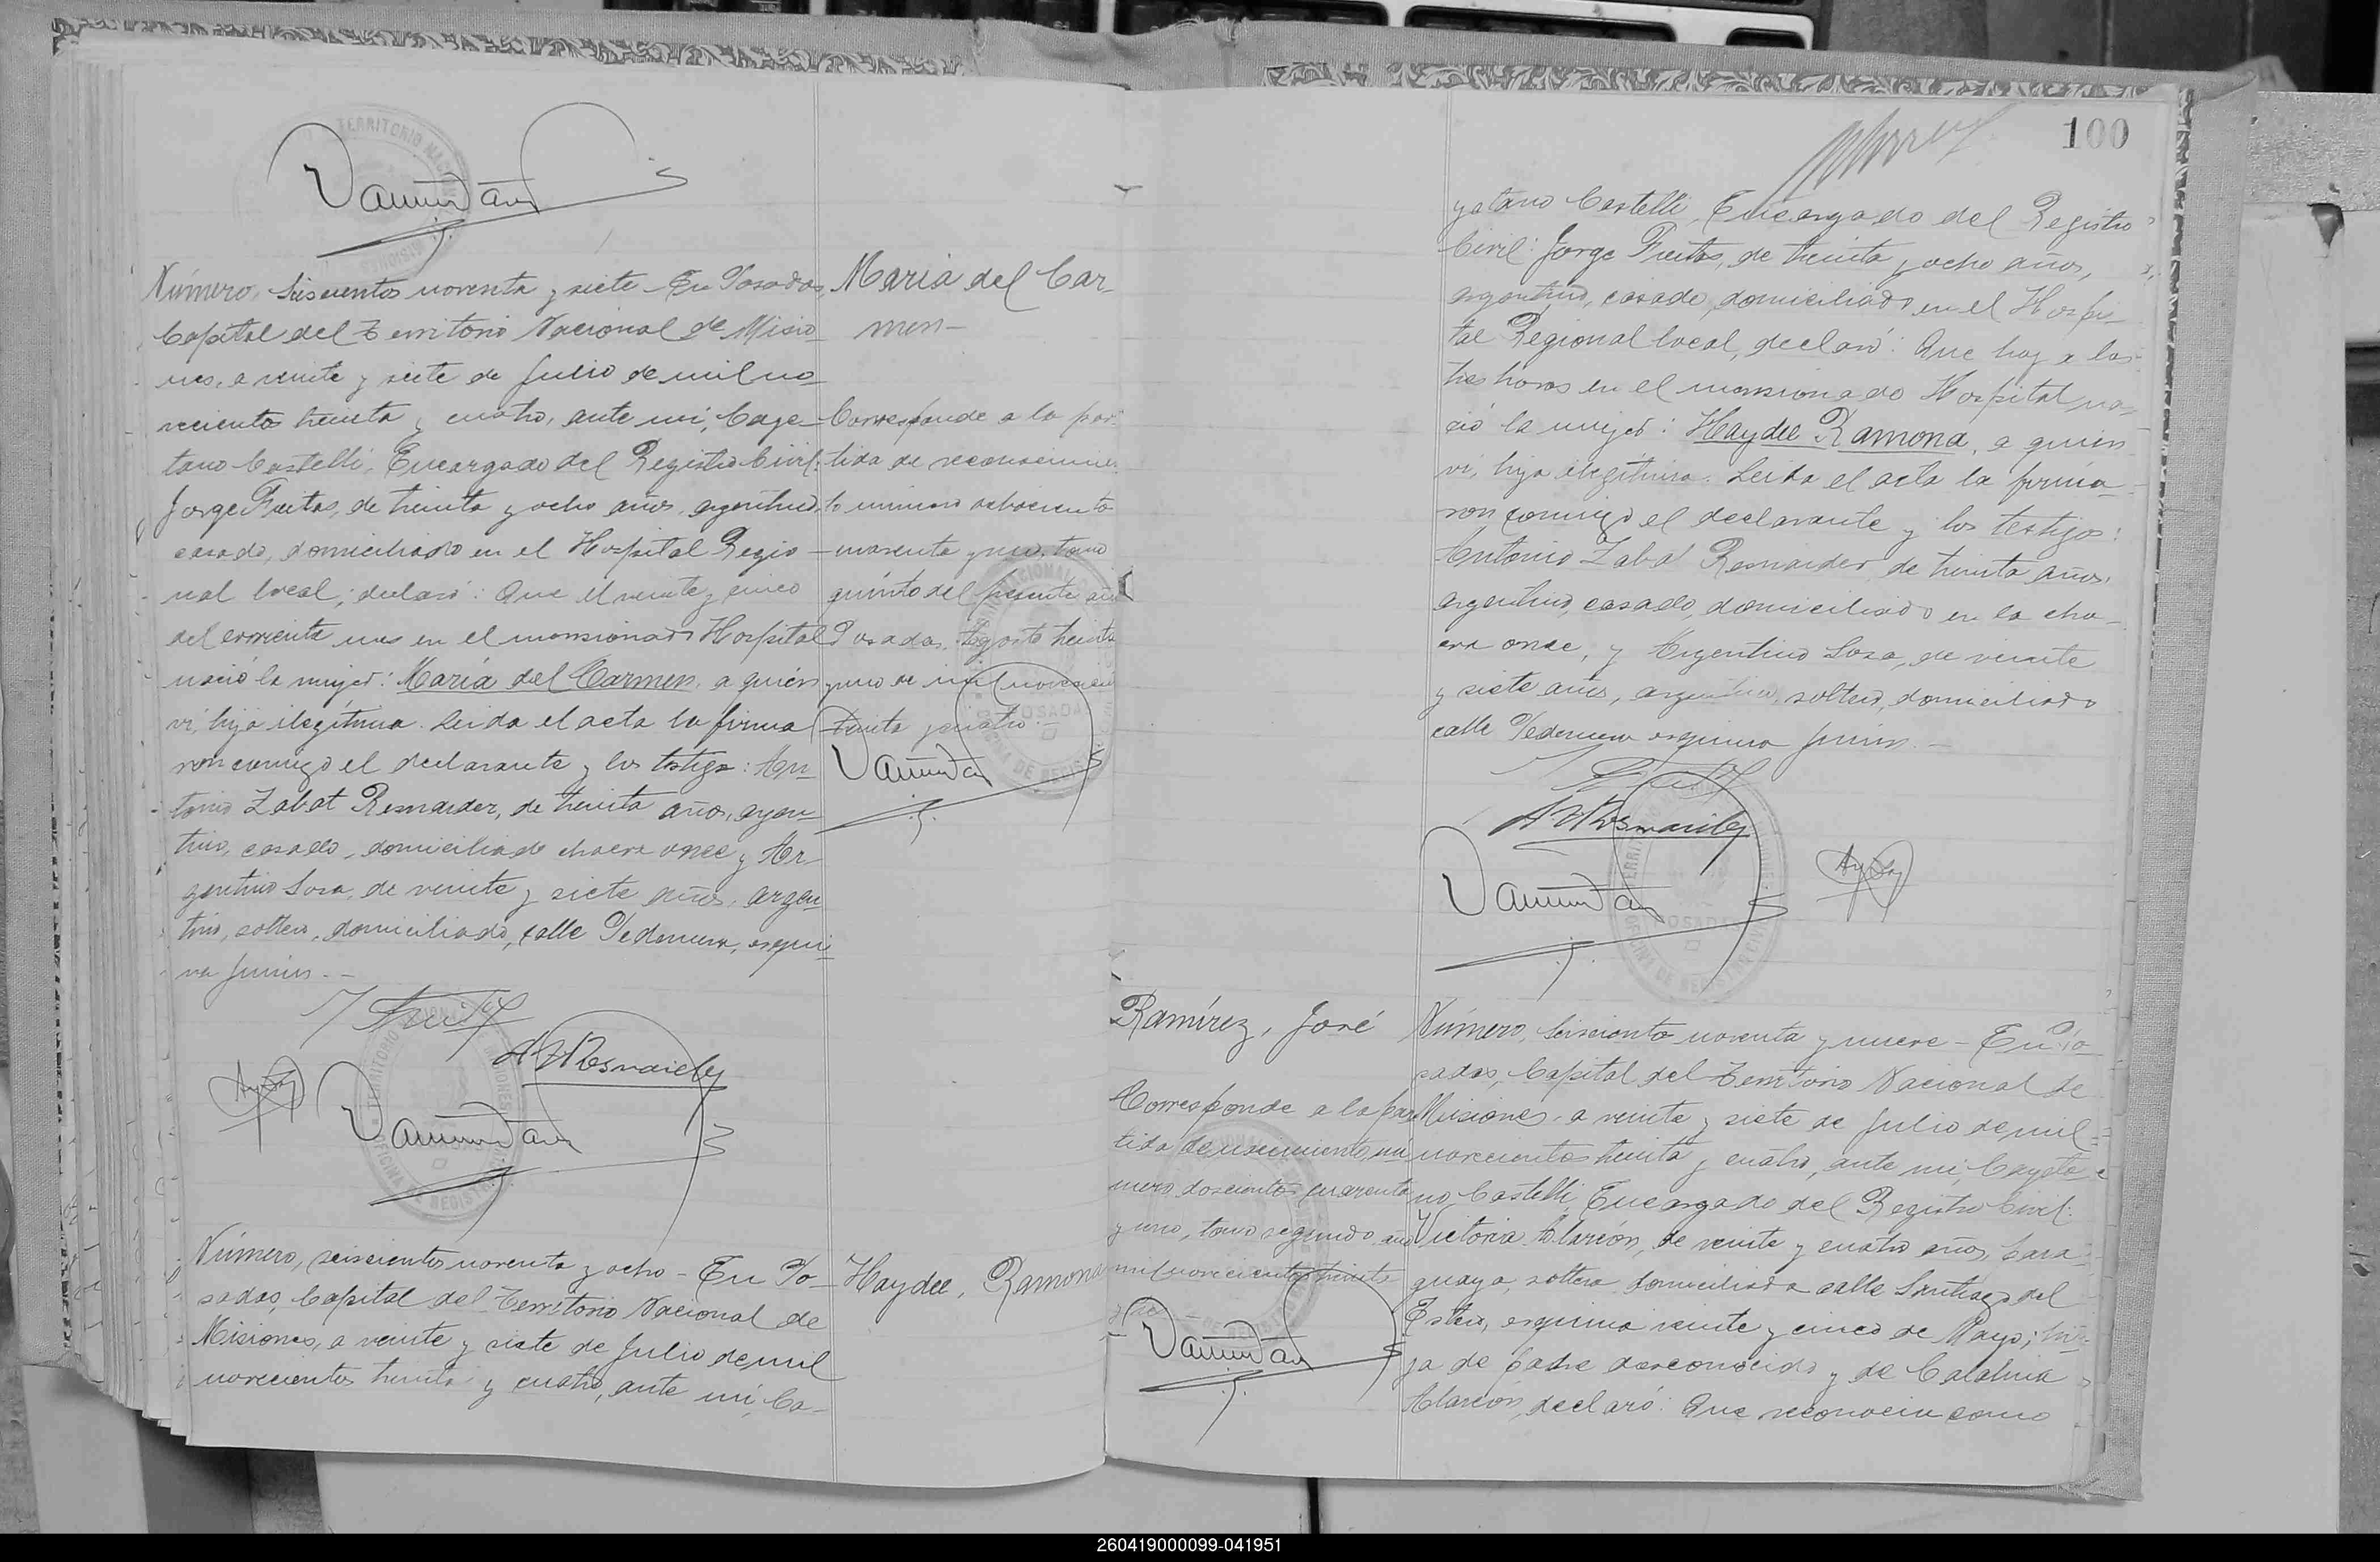 Número, Seiscientos noventa y siete - En Posadas,
Capital del Territorio Nacional de Misio-
nes, a veinte y siete de Julio de mil no-
vecientos treinta y cuatro, ante mi, Caye-
tano Castelli, Encargado del Registro Civil:
Jorge Freitas, de treinta y ocho años, argentino,
casado, domiciliado en el Hospital Regio-
nal local, declaró: Que el veinte y cinco
del corriente mes en el mensionado Hospital
nació la mujer: María del Carmen, a quién
ví, hija ilegítima. Leida el acta la firma-
ron conmigo el declarante y los testigos: An-
tonio Zabat Resnaider, de treinta años, argen-
tino, casado, domiciliado chacra once y Ar-
gentino Sosa, de veinte y siete años, argen-
tino, soltero, domiciliado, calle Pedernera, esqui-
na Junin.-
María del Car-
men-
Corresponde a la par-
tida de reconocimien-
to número ochociento
cuarenta y uno, tomo
quinto del presente año
Posadas, Agosto treinta
y uno de mil novecien
treinta y cuatro.-
Número, seiscientos noventa y ocho - En Po-
sadas, Capital del Territorio Nacional de
Misiones, a veinte y siete de Julio de mil
novecientos treinta y cuatro, ante mi, Ca-
Haydee, Ramona
100
yetano Castelli, Encargado del Registro
Civil: Jorge Freitas, de treinta y ocho años,
argentino, casado, domiciliado en el Hospi-
tal Regional local, declaró: Que hoy a las
tres horas en el mensionado Hospital na-
ció la mujer: Haydee Ramona, a quien
ví, hija ilegítima. Leida el acta la firma-
ron conmigo el declarante y los testigos:
Antonio Zabat Resnaider, de treinta años,
argentino, casado, domiciliado en la cha-
cra once, y Argentino Sosa, de veinte
y siete años, argentino, soltero, domiciliado
calle Pedernera esquina Junin.-
Ramírez, José
Corresponde a la par
tida de nacimiento, nú
mero doscientos cuarenta
y uno, tomo segundo, año
mil novecientos treinta
Número, Seiscientos noventa y nueve - En Po-
sadas, Capital del Territorio Nacional de
Misiones, a veinte y siete de Julio de mil
novecientos treinta y cuatro, ante mi, Cayeta-
no Castelli, Encargado del Registro Civil:
Victoria Alarcón, de veinte y cuatro años, Para-
guaya, soltera, domiciliada calle Santiago del
Estero, esquina veinte y cinco de Mayo; hi-
ja de padre desconocido y de Catalina
Alarcón, declaró: Que reconocia como
260419000099-041951